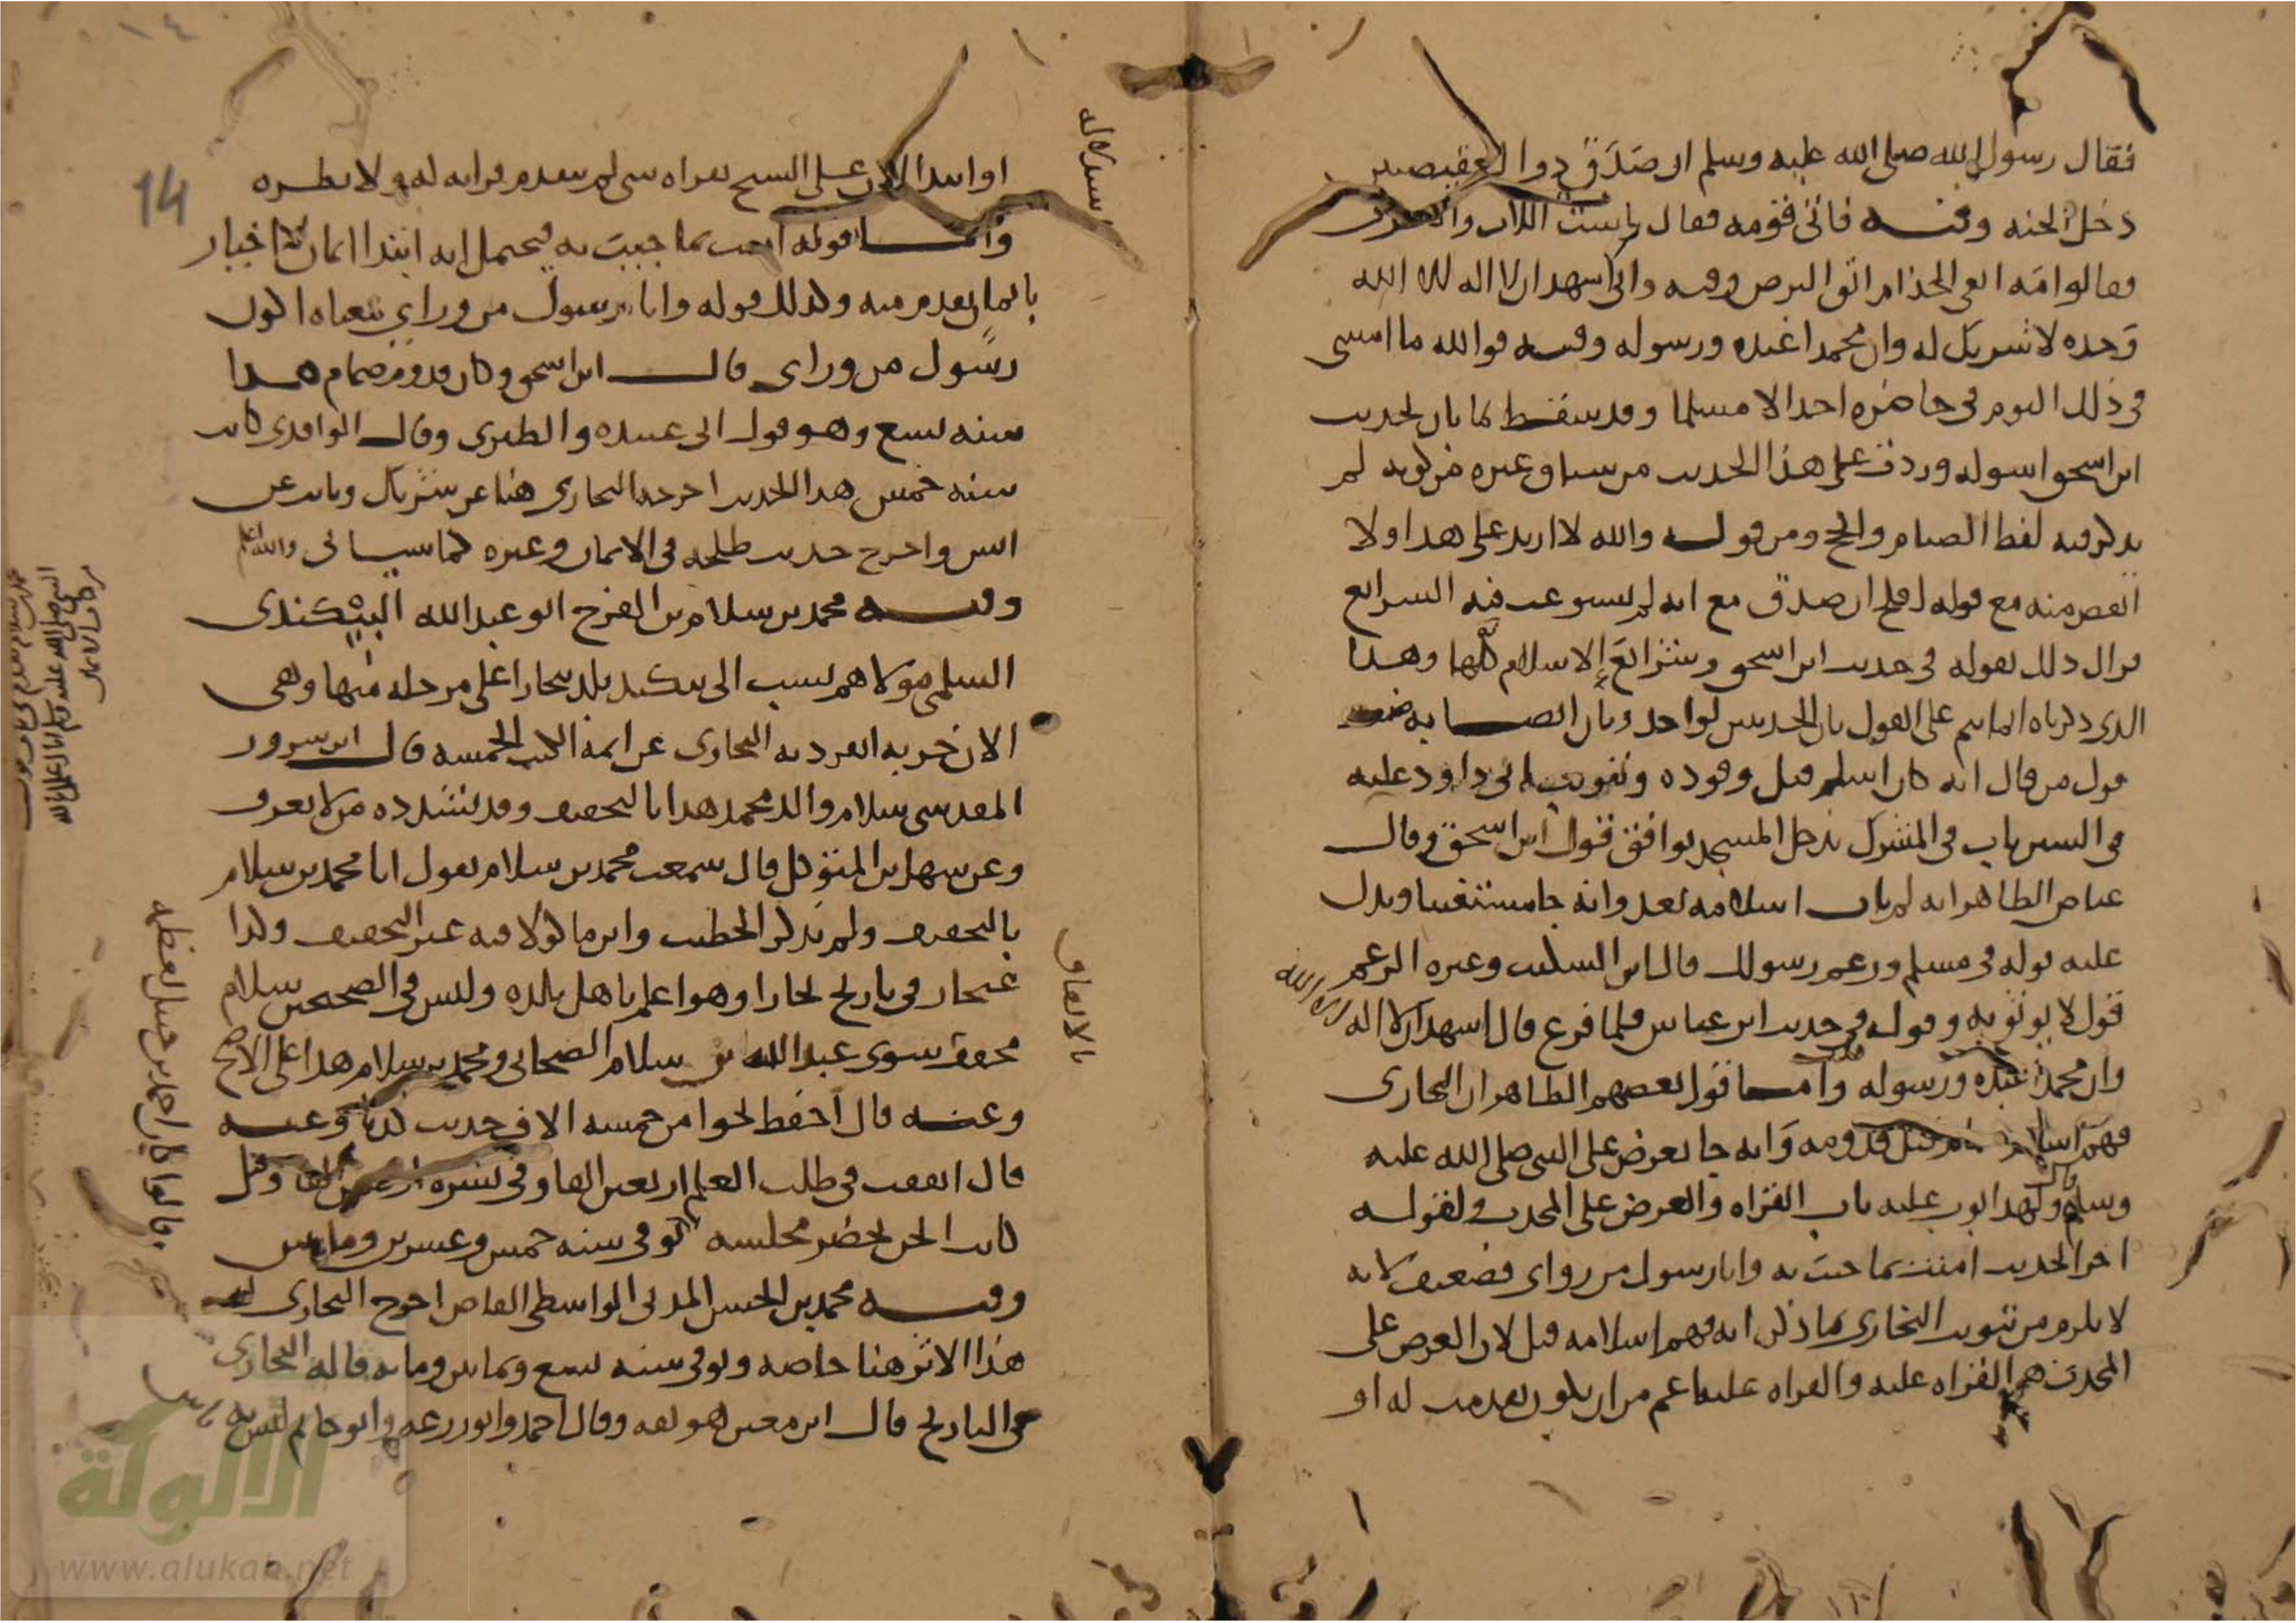 فقال رسول الله صلى الله عليه وسلم ان صَدَقَ ذوا العقيصتين
دخل الجنه وفيه فاتى قومه فقال بئست اللات والعزى
فقالوا مَه اتق الجذام اتق البرص وفيه واني اشهد ان لا اله الا الله
وَحده لا شريك له وان محمدا عبده ورسوله وفيه فوالله ما امسى
في ذلك اليوم في حاضره احد الا مسلما وقد سقط لما بان لحديث
ابن اسحق على هذا الحديث من سياق غيره من كونه لم
يذكر فيه لفظ الصيام والحج ومن قوله والله لا ازيد على هذا ولا
انقص منه مع قوله افلح ان صدق مع انه لم يستوعب فيه الشرايع
فزال ذلك بقوله في حديث ابن اسحق وشرائعَ الاسلام كلَّها وهذا
الذي ذكرناه انما يتم على القول بان الحديثين لواحد وبان
قول من قال انه كان اسلم قبل وفوده وتبويب ابي داود عليه
في السنن باب في المشرك يدخل المسجد يوافق قول ابن اسحق وقال
عياض الظاهر انه لم يات اسلامه بعد وانه جا مستثبتا ويدل
عليه قوله في مسلم وزعم رسولك قال ابن السكيت وغيره الزعم
قول لا يوثق به وقوله في حديث ابن عباس فلما فرغ قال اشهد ان لا اله الا الله
وان محمدا عبده ورسوله وامــا قول بعضهم الظاهر ان البخاري
فهم اسلامه قبل قدومه وَانه جا يعرض على النبي صلى الله عليه
وسلم ولهذا بوب عليه باب القراه والعرض على المحدث ولقوله
اخر الحديث امنت بما جيت به وانا رسول من وراي فضعيف لانه
لا يلزم من تبويب البخاري ما ذكر انه فهم اسلامه قبل لان العرض على
المحدث هو القراه عليه والقراه عليه اعم من ان يكون تقدمت له او
او ابتدا الان على الشيخ بقراه شي لم يتقدم قراته له ولا نظره
وامــا قوله امنت بما جيت به فيحتمل انه ابتدا ايمان لا اخبار
بايمان تقدم منه وكذلك قوله وانا رسول من وراي معناه اكون
رسول من وراي قال ابن اسحق وكان قدوم ضمام هــذا
سنه تسع وهو قول ابي عبيده والطبري وقال الواقدي كان
سنه خمس هذا الحديث اخرجه البخاري هنا عن شريك وثابت عن
انس واخرج حديث طلحه في الايمان وغيره كما سياتي والله اعلم
وفيه محمد بن سلام بن الفرج ابو عبدالله البيْكندى
السلمي مولاهم نسب الى بيكند بلد ببخارا على مرحله منها وهي
الان خربه انفرد به البخاري عن ايمة الكتب الخمسه قال ابن سرور
المقدسي سلام والد محمد هذا بالتخفيف وقد يشدده من لا يعرف
وعن سهل بن المتوكل قال سمعت محمد بن سلام يقول انا محمد بن سلام
بالتخفيف ولم يذكر الخطيب وابن ماكولا فيه غير التخفيف وكذا
غنجار في تاريخ بخارا وهو اعلم باهل بلده وليس في الصحيحين سلام
مخفف سوى عبدالله بن سلام الصحابي ومحمد بن سلام هذا على الاصح
وعنــه قال احفظ نحوا من خمسه الاف حديث كذب وعنــه
قال انفقت في طلب العلم اربعين الفا وفي نشره اربعين الفا وقيل
كانت الجن تحضر مجلسه توفي سنه خمس وعشرين ومايتين
وفيه محمد بن الحسن المدني الواسطي القاضي اخرج البخاري له
هذا الاثر هنا خاصه وتوفي سنه تسع وثمانين ومايه قاله البخاري
في التاريخ قال ابن معين هو ثقه وقال احمد وابو زرعه وابو حاتم ليس به باس
بالاتفاق
14
الألوكة
www.alukah.net